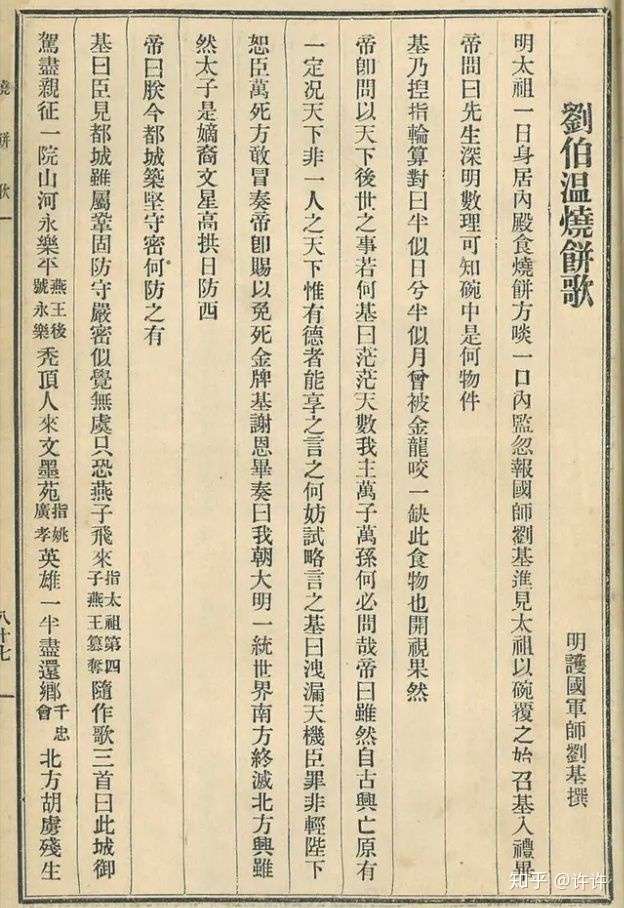 劉伯温燒餅歌
明護國軍師劉基撰
明太祖一日身居內殿食燒餅方啖一口內監忽報國師劉基進見太祖以碗覆之始召基入禮畢
帝問曰先生深明數理可知碗中是何物件
基乃揑指輪算對曰半似日兮半似月曾被金龍咬一缺此食物也開視果然
帝卽問以天下後世之事若何基曰茫茫天數我主萬子萬孫何必問哉帝曰雖然自古興亡原有
一定况天下非一人之天下惟有德者能享之言之何妨試略言之基曰洩漏天機臣罪非輕陛下
恕臣萬死方敢冒奏帝卽賜以免死金牌基謝恩畢奏曰我朝大明一統世界南方終滅北方興雖
然太子是嫡裔文星高拱日防西
帝曰朕今都城築堅守密何防之有
基曰臣見都城雖屬鞏固防守嚴密似覺無虞只恐燕子飛來指太祖第四子燕王篡奪隨作歌三首曰此城御
駕盡親征一院山河永樂平燕王後號永樂禿頂人來文墨苑指姚廣孝英雄一半盡還鄉千忠會北方胡虜殘生
燒餅歌
八十七
知乎 @许许